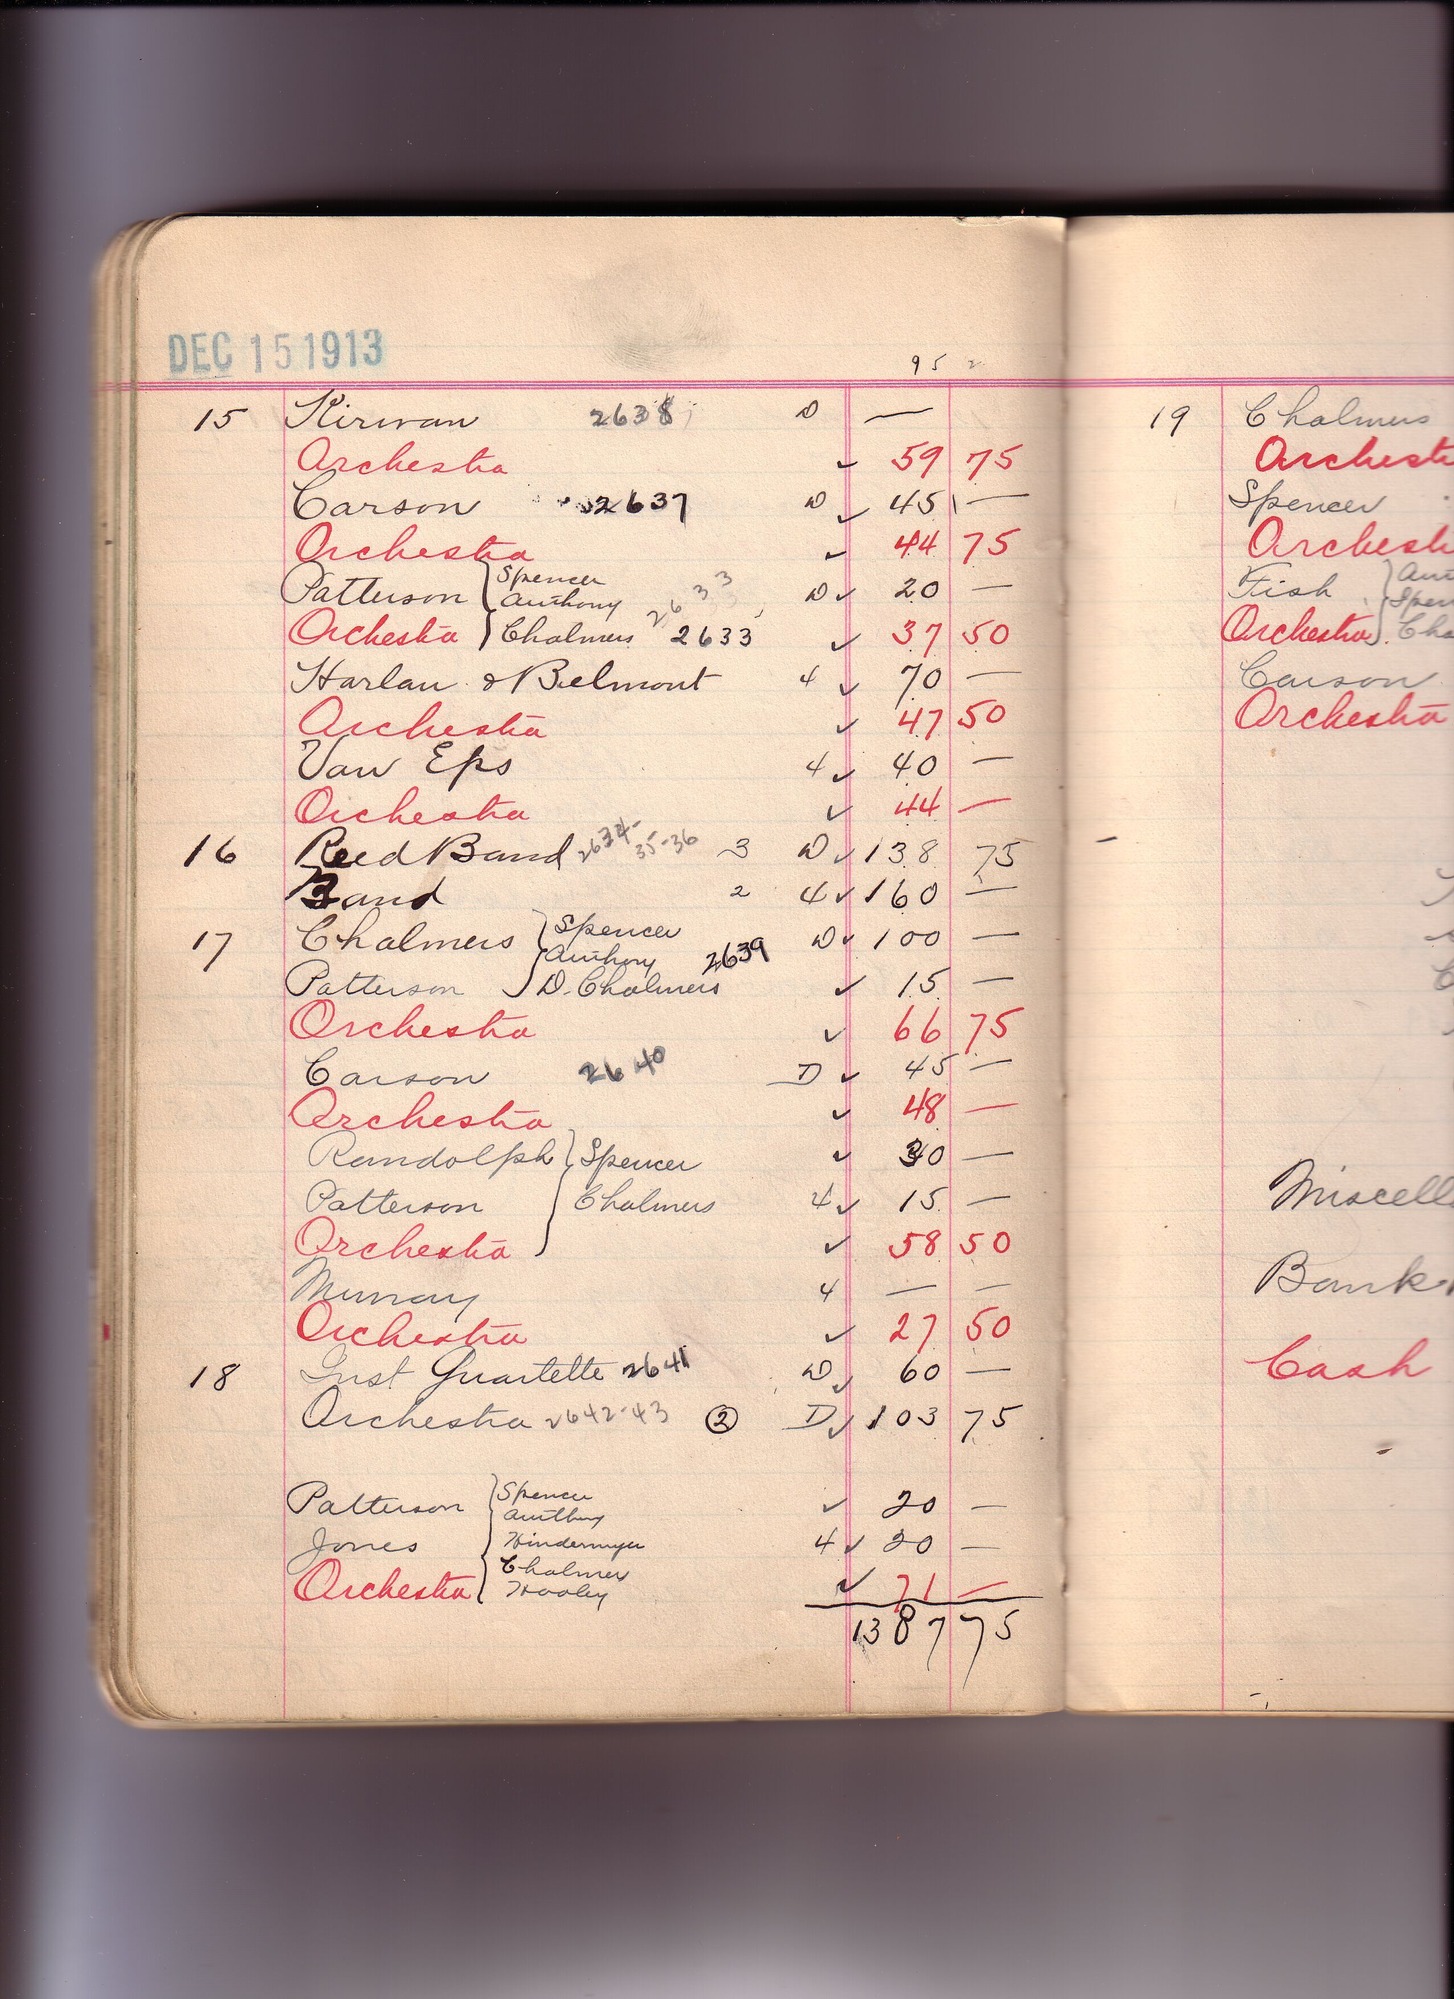 DEC 15 1913
95 2
15 Kirwan 2638 D —
Orchestra ✓ 59 75
Carson 2637 D ✓ 45 —
Orchestra ✓ 44 75
Patterson { Spencer
Anthony 2633 D ✓ 20 —
Orchestra } Chalmers 2633 ✓ 37 50
Harlan & Belmont 4 ✓ 70 —
Orchestra ✓ 47 50
Van Eps 4 ✓ 40 —
Orchestra ✓ 44 —
16 Reed Band 2634-35-36 3 D ✓ 138 75
Band 2 4 ✓ 160 —
17 Chalmers } Spencer
Anthony 2639 D ✓ 100 —
Patterson } D. Chalmers ✓ 15 —
Orchestra ✓ 66 75
Carson 2640 D ✓ 45 —
Orchestra ✓ 48 —
Randolph } Spencer ✓ 30 —
Patterson } Chalmers 4 ✓ 15 —
Orchestra } ✓ 58 50
Murray 4 — —
Orchestra ✓ 27 50
18 Inst Quartette 2641 D ✓ 60 —
Orchestra 2642-43 ② D ✓ 103 75
Patterson { Spencer ✓ 20 —
Anthony
Jones { Hindermyer 4 ✓ 20 —
Chalmers
Orchestra { Hooley ✓ 71 —
1387 75
19 Chalmers
Orchest
Spencer
Orchest
Fish } An
Spen
Orchestra } Cha
Carson
Orchestra
Miscell
Bank
Cash